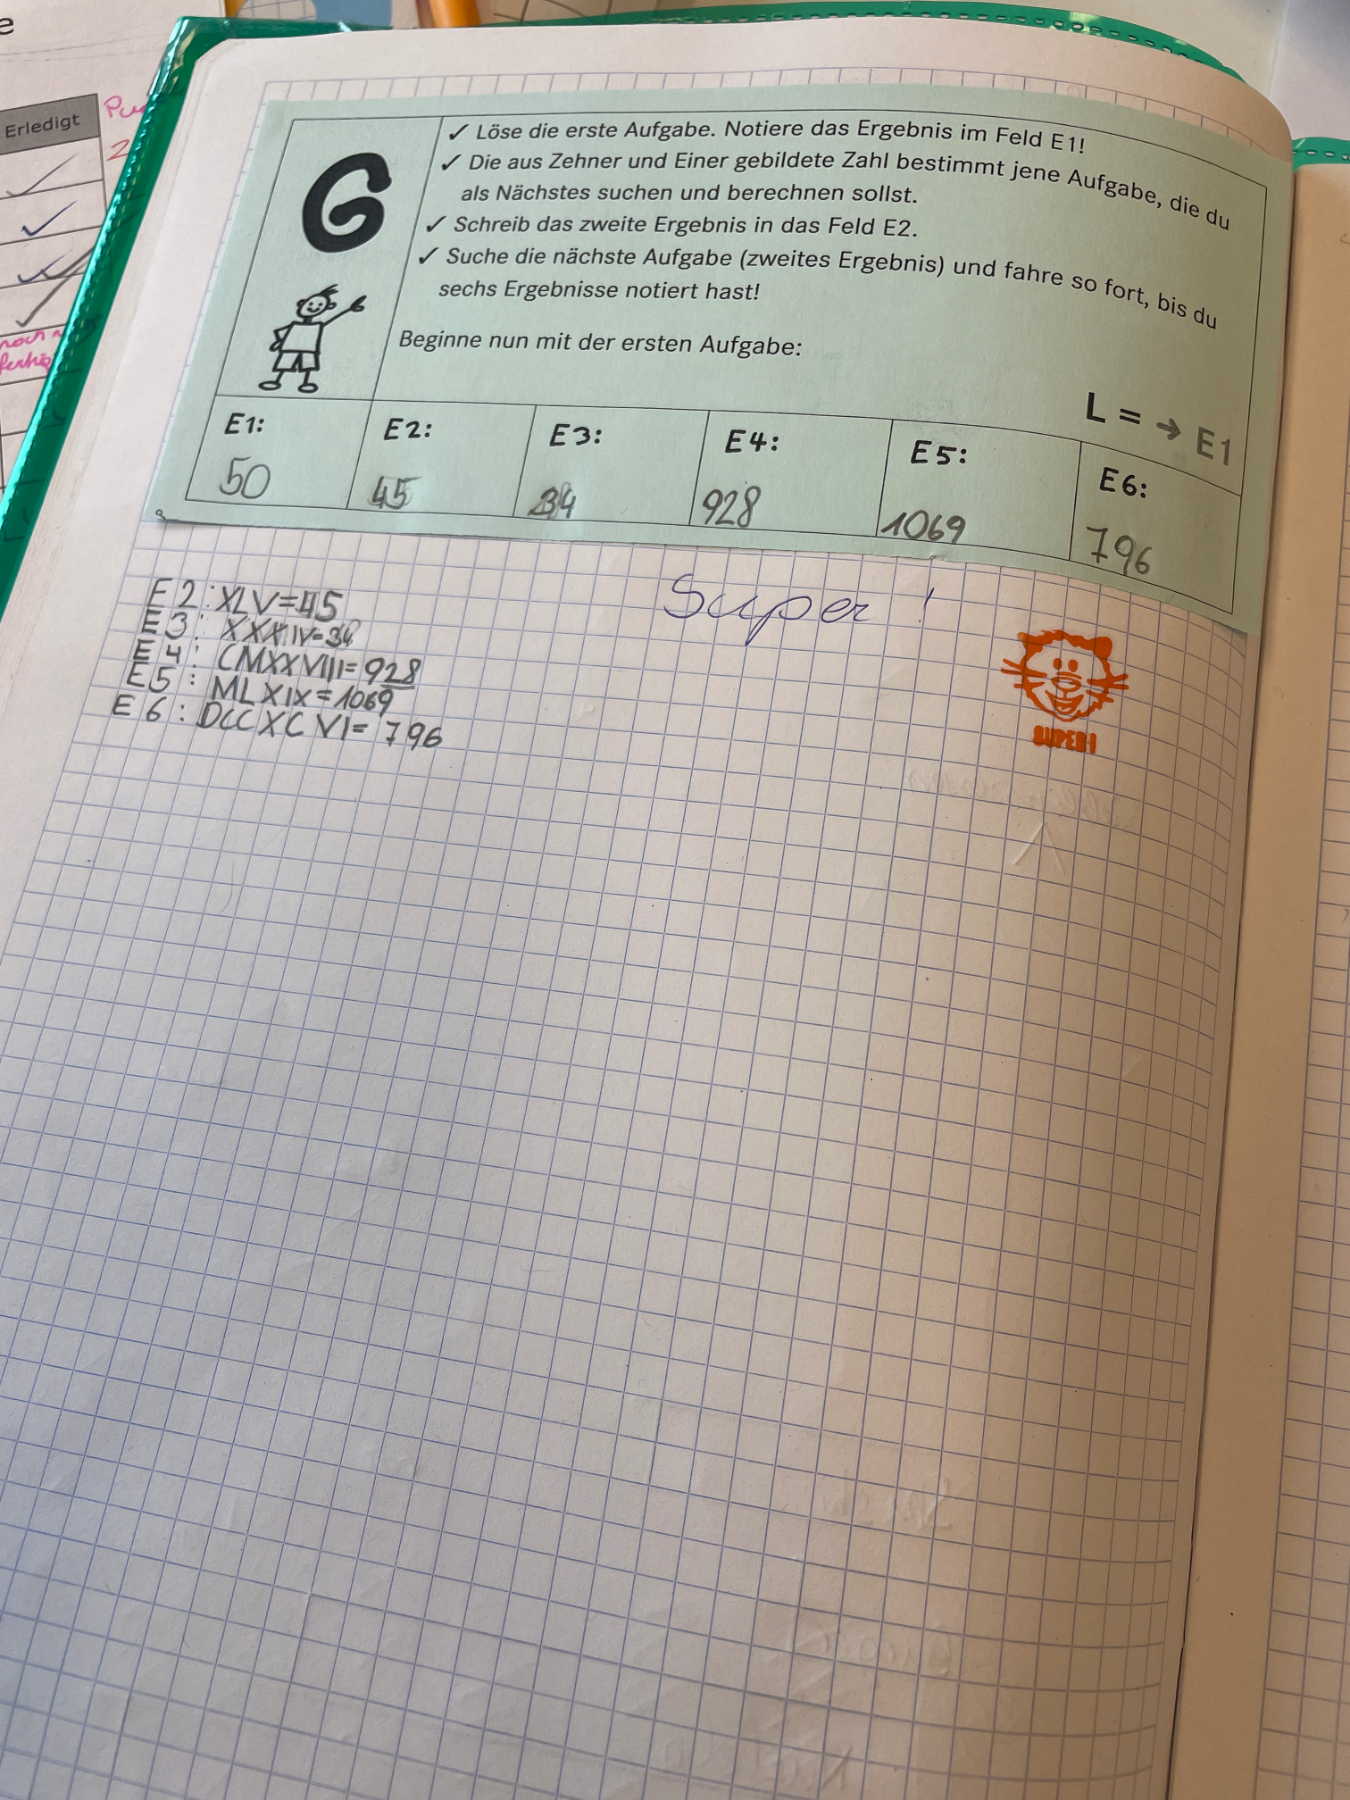 e
Erledigt
G
✓ Löse die erste Aufgabe. Notiere das Ergebnis im Feld E1!
✓ Die aus Zehner und Einer gebildete Zahl bestimmt jene Aufgabe, die du
als Nächstes suchen und berechnen sollst.
✓ Schreib das zweite Ergebnis in das Feld E2.
✓ Suche die nächste Aufgabe (zweites Ergebnis) und fahre so fort, bis du
sechs Ergebnisse notiert hast!
Beginne nun mit der ersten Aufgabe:
L = → E1
E1: E2: E3: E4: E5: E6:
50 45 34 928 1069 796
E2: XLV=45
E3: XXXIV=34
E4: CMXXVIII=928
E5: MLXIX=1069
E6: DCCXCVI= 796
Super!
SUPER!
noch